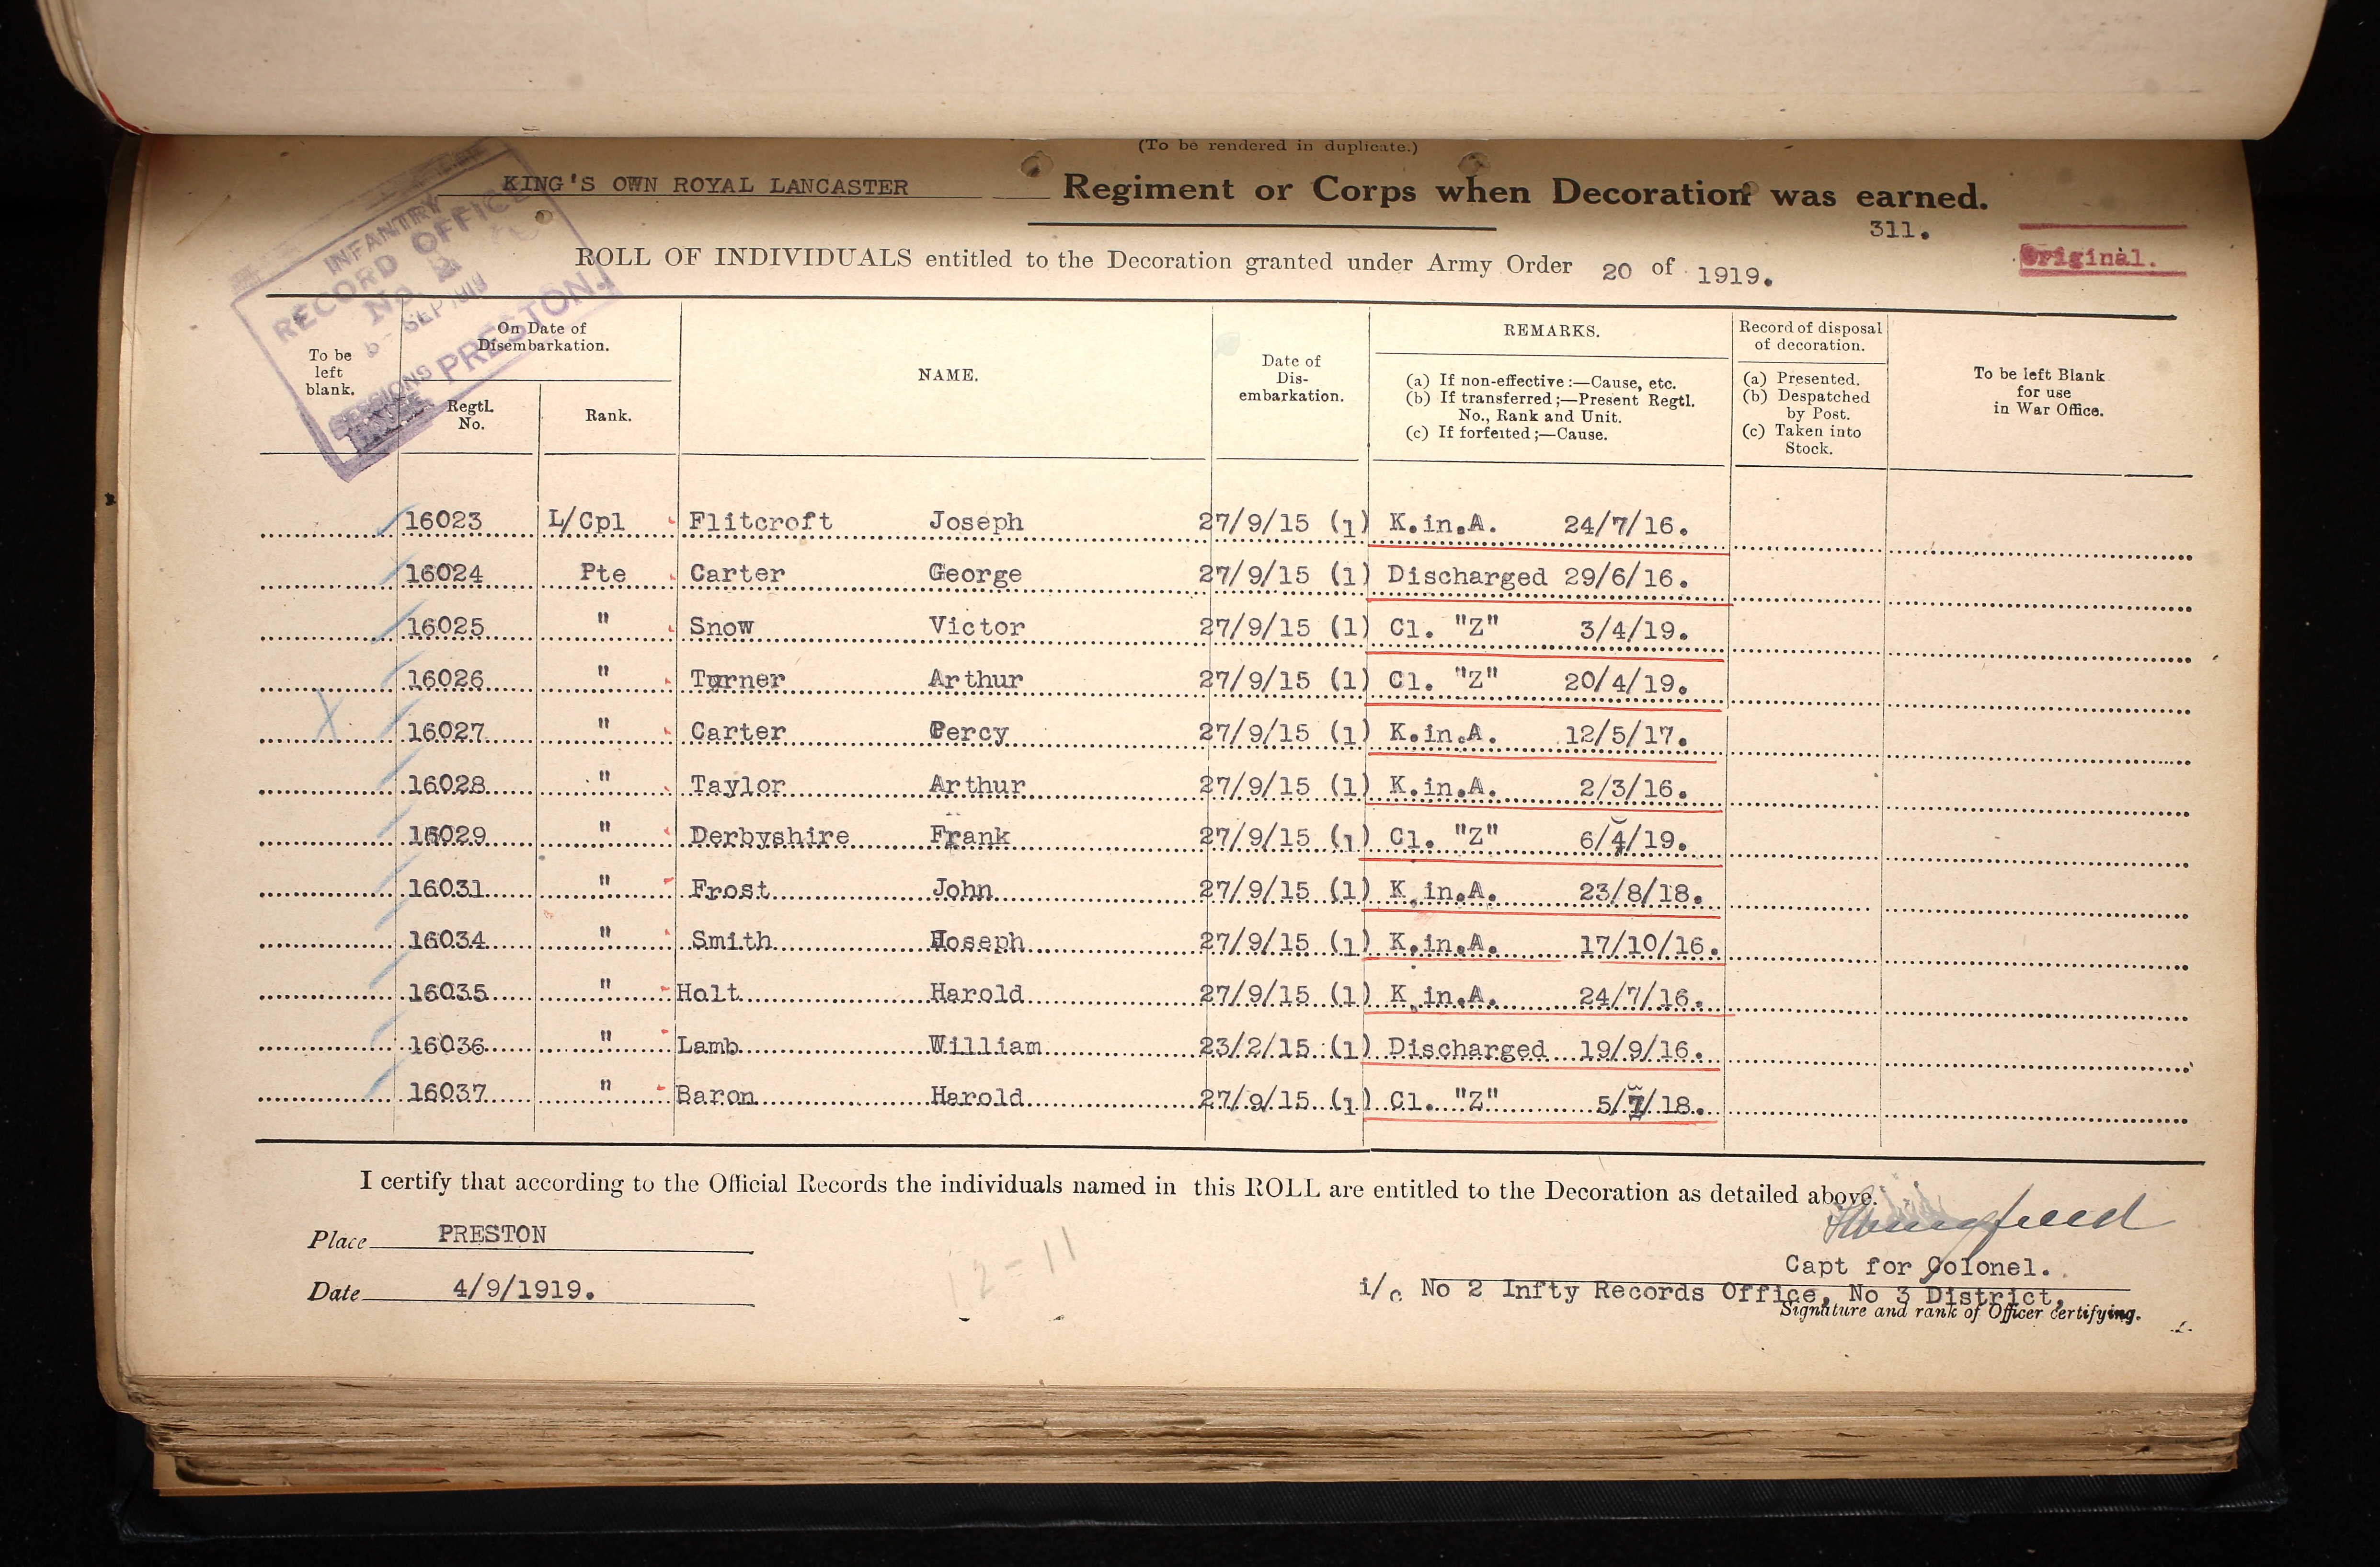 (To be rendered in duplicate.)
KING'S OWN ROYAL LANCASTER Regiment or Corps when Decoration was earned.
311.
Original.
ROLL OF INDIVIDUALS entitled to the Decoration granted under Army Order 20 of 1919.
INFANTRY
RECORD OFFICE
No. 2
SEP 1919
PRESTON.
To be left blank.
On Date of Disembarkation.
Regtl. No.
Rank.
NAME.
Date of Dis-embarkation.
REMARKS.
(a) If non-effective:—Cause, etc.
(b) If transferred;—Present Regtl. No., Rank and Unit.
(c) If forfeited;—Cause.
Record of disposal of decoration.
(a) Presented.
(b) Despatched by Post.
(c) Taken into Stock.
To be left Blank for use in War Office.
16023 L/Cpl Flitcroft Joseph 27/9/15 (1) K.in.A. 24/7/16.
16024 Pte Carter George 27/9/15 (1) Discharged 29/6/16.
16025 " Snow Victor 27/9/15 (1) Cl. "Z" 3/4/19.
16026 " Turner Arthur 27/9/15 (1) Cl. "Z" 20/4/19.
16027 " Carter Percy 27/9/15 (1) K.in.A. 12/5/17.
16028 " Taylor Arthur 27/9/15 (1) K.in.A. 2/3/16.
16029 " Derbyshire Frank 27/9/15 (1) Cl. "Z" 6/4/19.
16031 " Frost John 27/9/15 (1) K.in.A. 23/8/18.
16034 " Smith Joseph 27/9/15 (1) K.in.A. 17/10/16.
16035 " Holt Harold 27/9/15 (1) K.in.A. 24/7/16.
16036 " Lamb William 23/2/15 (1) Discharged 19/9/16.
16037 " Baron Harold 27/9/15 (1) Cl. "Z" 5/7/18.
I certify that according to the Official Records the individuals named in this ROLL are entitled to the Decoration as detailed above.
Place PRESTON
Date 4/9/1919.
12-11
Capt for Colonel.
i/c No 2 Infty Records Office, No 3 District,
Signature and rank of Officer certifying.